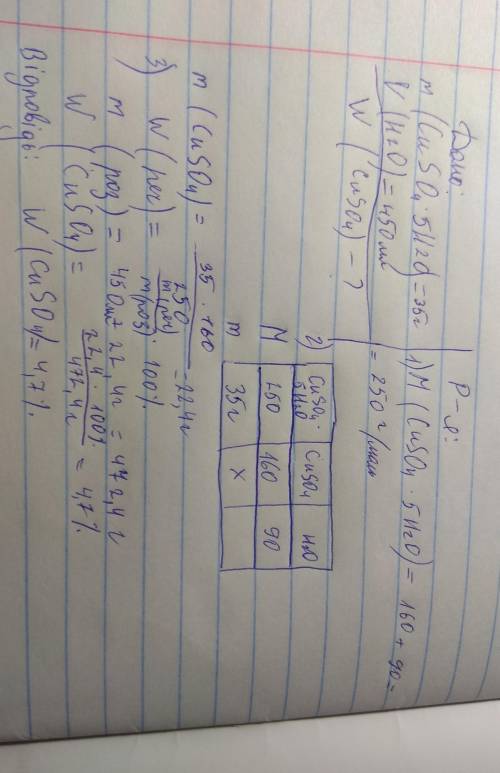 Дано:
m (CuSO₄·5H₂O)=35г
V (H₂O)=450мл
W (CuSO₄)-?
Р-я:
1) M (CuSO₄·5H₂O)= 160+90=
=250г/моль
2) CuSO₄·5H₂O CuSO₄ H₂O
M 250 160 90
m 35г x
m (CuSO₄)= 35·160 / 250 =22,4г
3) W (реч)= m(реч) / m(роз) · 100%
m (роз)= 450мл+22,4г = 472,4 г
W (CuSO₄)= 22,4·100% / 472,4г = 4,7%.
Відповідь: W (CuSO₄)=4,7%.